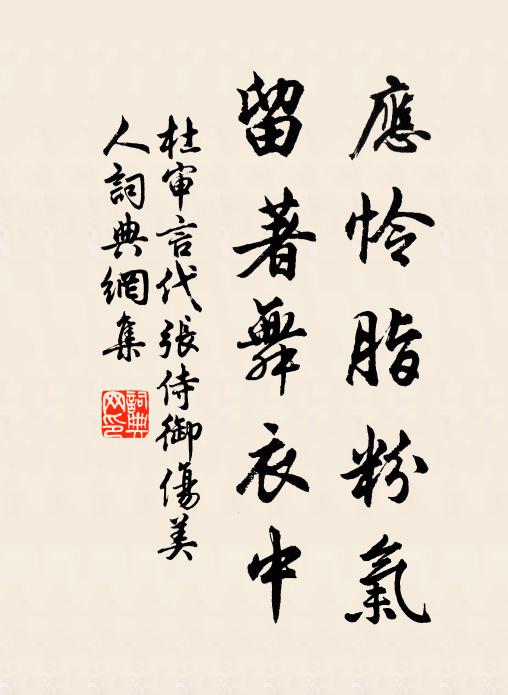 應怜脂粉氣
留著舞衣中
杜審言代張侍御傷美
人詞典網集
詞典
网印